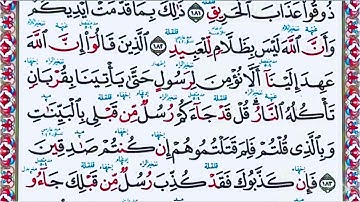 ذُوقُوا۟ عَذَابَ ٱلْحَرِيقِ ١٨١ ذَٰلِكَ بِمَا قَدَّمَتْ أَيْدِيكُمْ
وَأَنَّ ٱللَّهَ لَيْسَ بِظَلَّامٍ لِّلْعَبِيدِ ١٨٢ ٱلَّذِينَ قَالُوٓا۟ إِنَّ ٱللَّهَ
عَهِدَ إِلَيْنَآ أَلَّا نُؤْمِنَ لِرَسُولٍ حَتَّىٰ يَأْتِيَنَا بِقُرْبَانٍ
تَأْكُلُهُ ٱلنَّارُ ۗ قُلْ قَدْ جَآءَكُمْ رُسُلٌ مِّن قَبْلِى بِٱلْبَيِّنَٰتِ
وَبِٱلَّذِى قُلْتُمْ فَلِمَ قَتَلْتُمُوهُمْ إِن كُنتُمْ صَٰدِقِينَ
١٨٣ فَإِن كَذَّبُوكَ فَقَدْ كُذِّبَ رُسُلٌ مِّن قَبْلِكَ جَآءُو